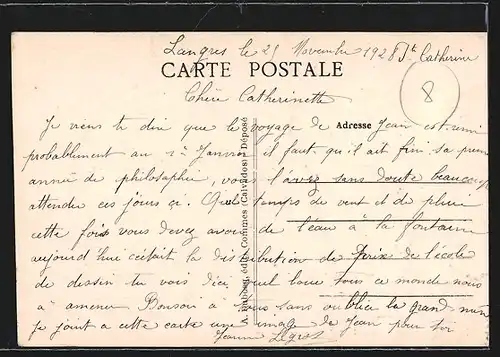 Langres le 25 Novembre 1928 St Catherine
CARTE POSTALE
8
Chère Catherinette
Adresse
Je viens te dire que le voyage de Jean est remi
probablement au 1r Janvier il faut qu'il ait fini sa
année de philosophie, vous l'avez sans doute beaucoup
attendu ces jours ci. Quel temps de vent et de pluie
cette fois vous devez avoir de l'eau à la fontaine
aujourd'hui cétait la distribution de Prix de l'école
de dessin tu vois d'ici quel tout ce monde nous
à amener Bonsoir à tous sans oublier le grand
je joint a cette carte une image de Jean pour toi
Jeanne
A. Dubosq, édit., Commes (Calvados) - Déposé